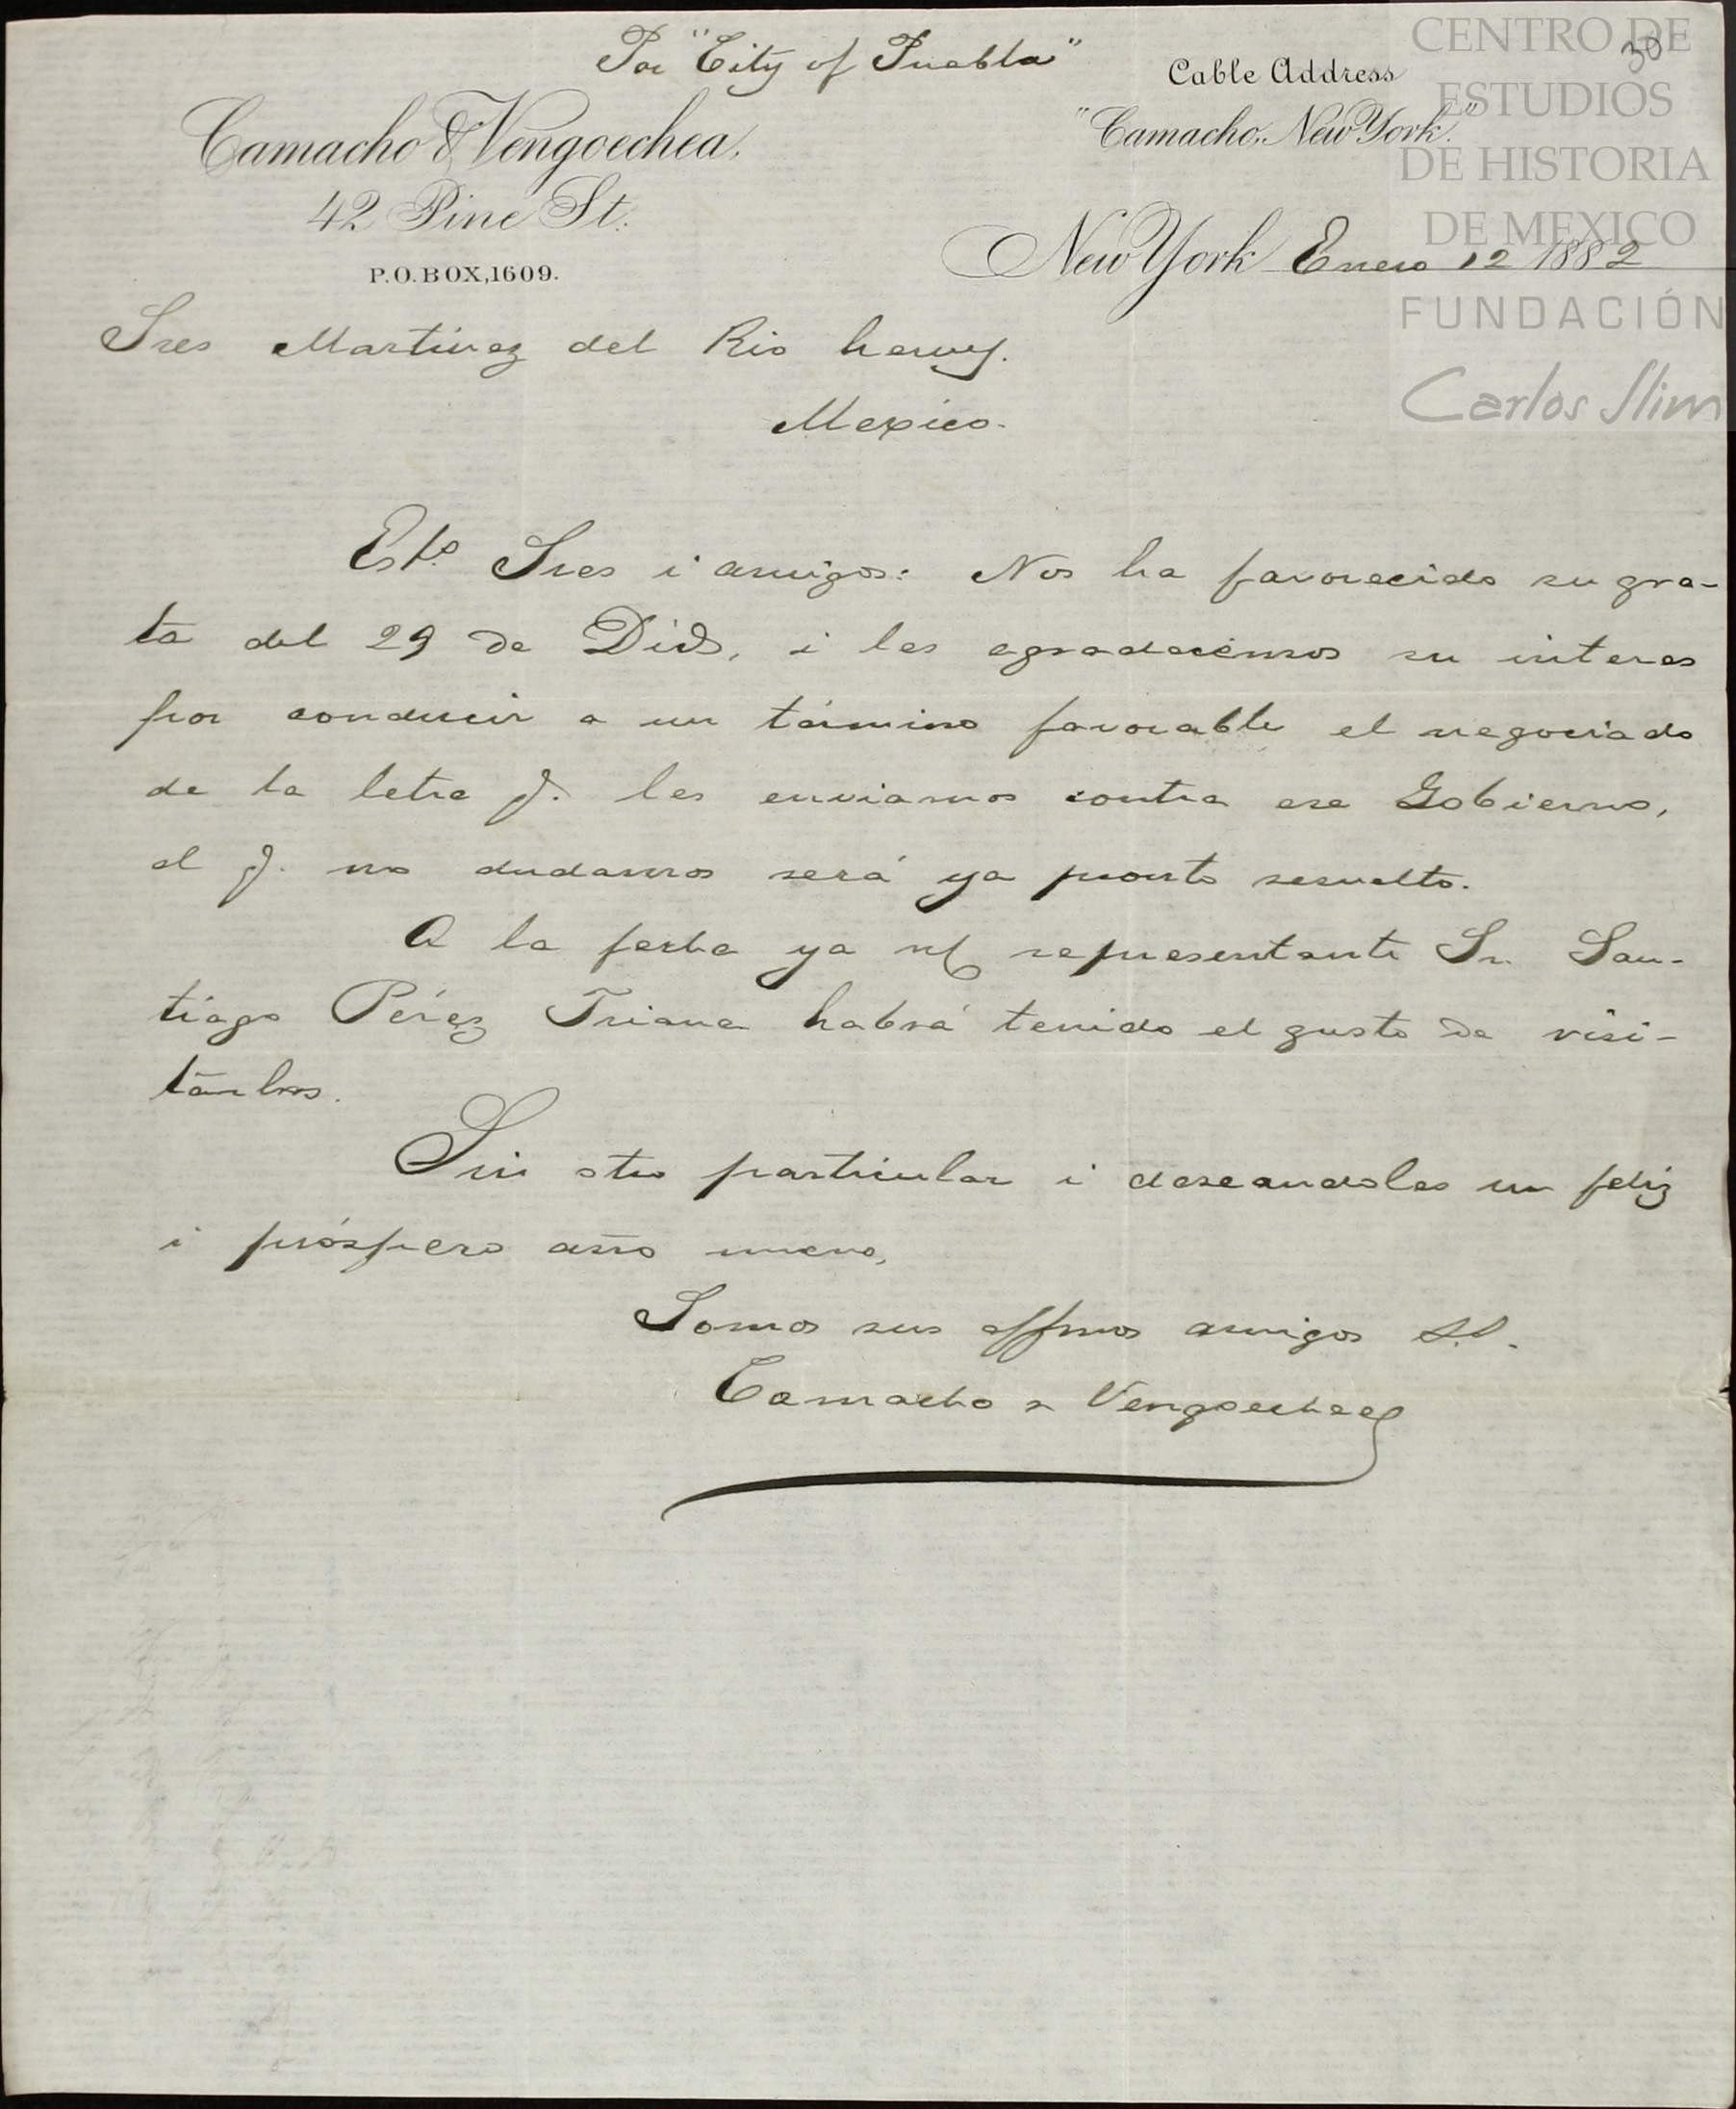 Por "City of Puebla"
30
Cable Address
"Camacho, New York."
Camacho & Vengoechea.
42 Pine St.
P.O. BOX, 1609.
New York Enero 12 1882
Sres Martinez del Rio
Mexico.
Sres i amigos: Nos ha favorecido su gra-
ta del 29 de i les agradecemos su interes
por conducir a un término favorable el negociado
de la letra q. les enviamos contra ese Gobierno,
el q. no dudamos será ya pronto resuelto.
A la fecha ya representante Sr. San-
tiago Pérez Triana habrá tenido el gusto de visi-
tarlos.
Sin otro particular i deseandoles un feliz
i próspero año nuevo,
Somos sus affmos amigos
Camacho & Vengoechea
CENTRO DE
ESTUDIOS
DE HISTORIA
DE MEXICO
FUNDACIÓN
Carlos Slim